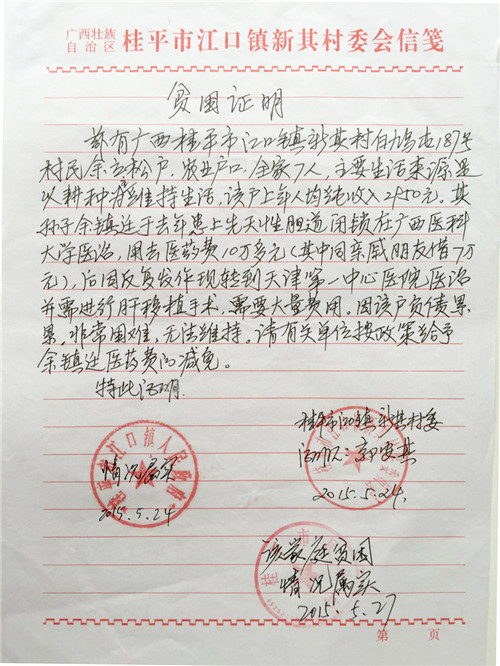 广西壮族
自治区 桂平市江口镇新其村委会信笺
贫困证明
兹有广西桂平市江口镇新其村白鸠屯187号
村民余立松户,农业户口,全家7人,主要生活来源是
以耕种维持生活,该户上年人均纯收入2450元。其
孙子余镇廷于去年患上先天性胆道闭锁在广西医科
大学医治,用去医药费10万多元(其中向亲戚朋友借7万
元),后因反复发作现转到天津第一中心医院医治
并需进行肝移植手术,需要大量费用。因该户负债累
累,非常困难,无法维持。请有关单位按政策给予
余镇廷医药费的减免。
特此证明.
桂平市江口镇新其村委
情况属实
2015.5.24
2015.5.24.
该家庭贫困
情况属实
2015.5.27
第 页